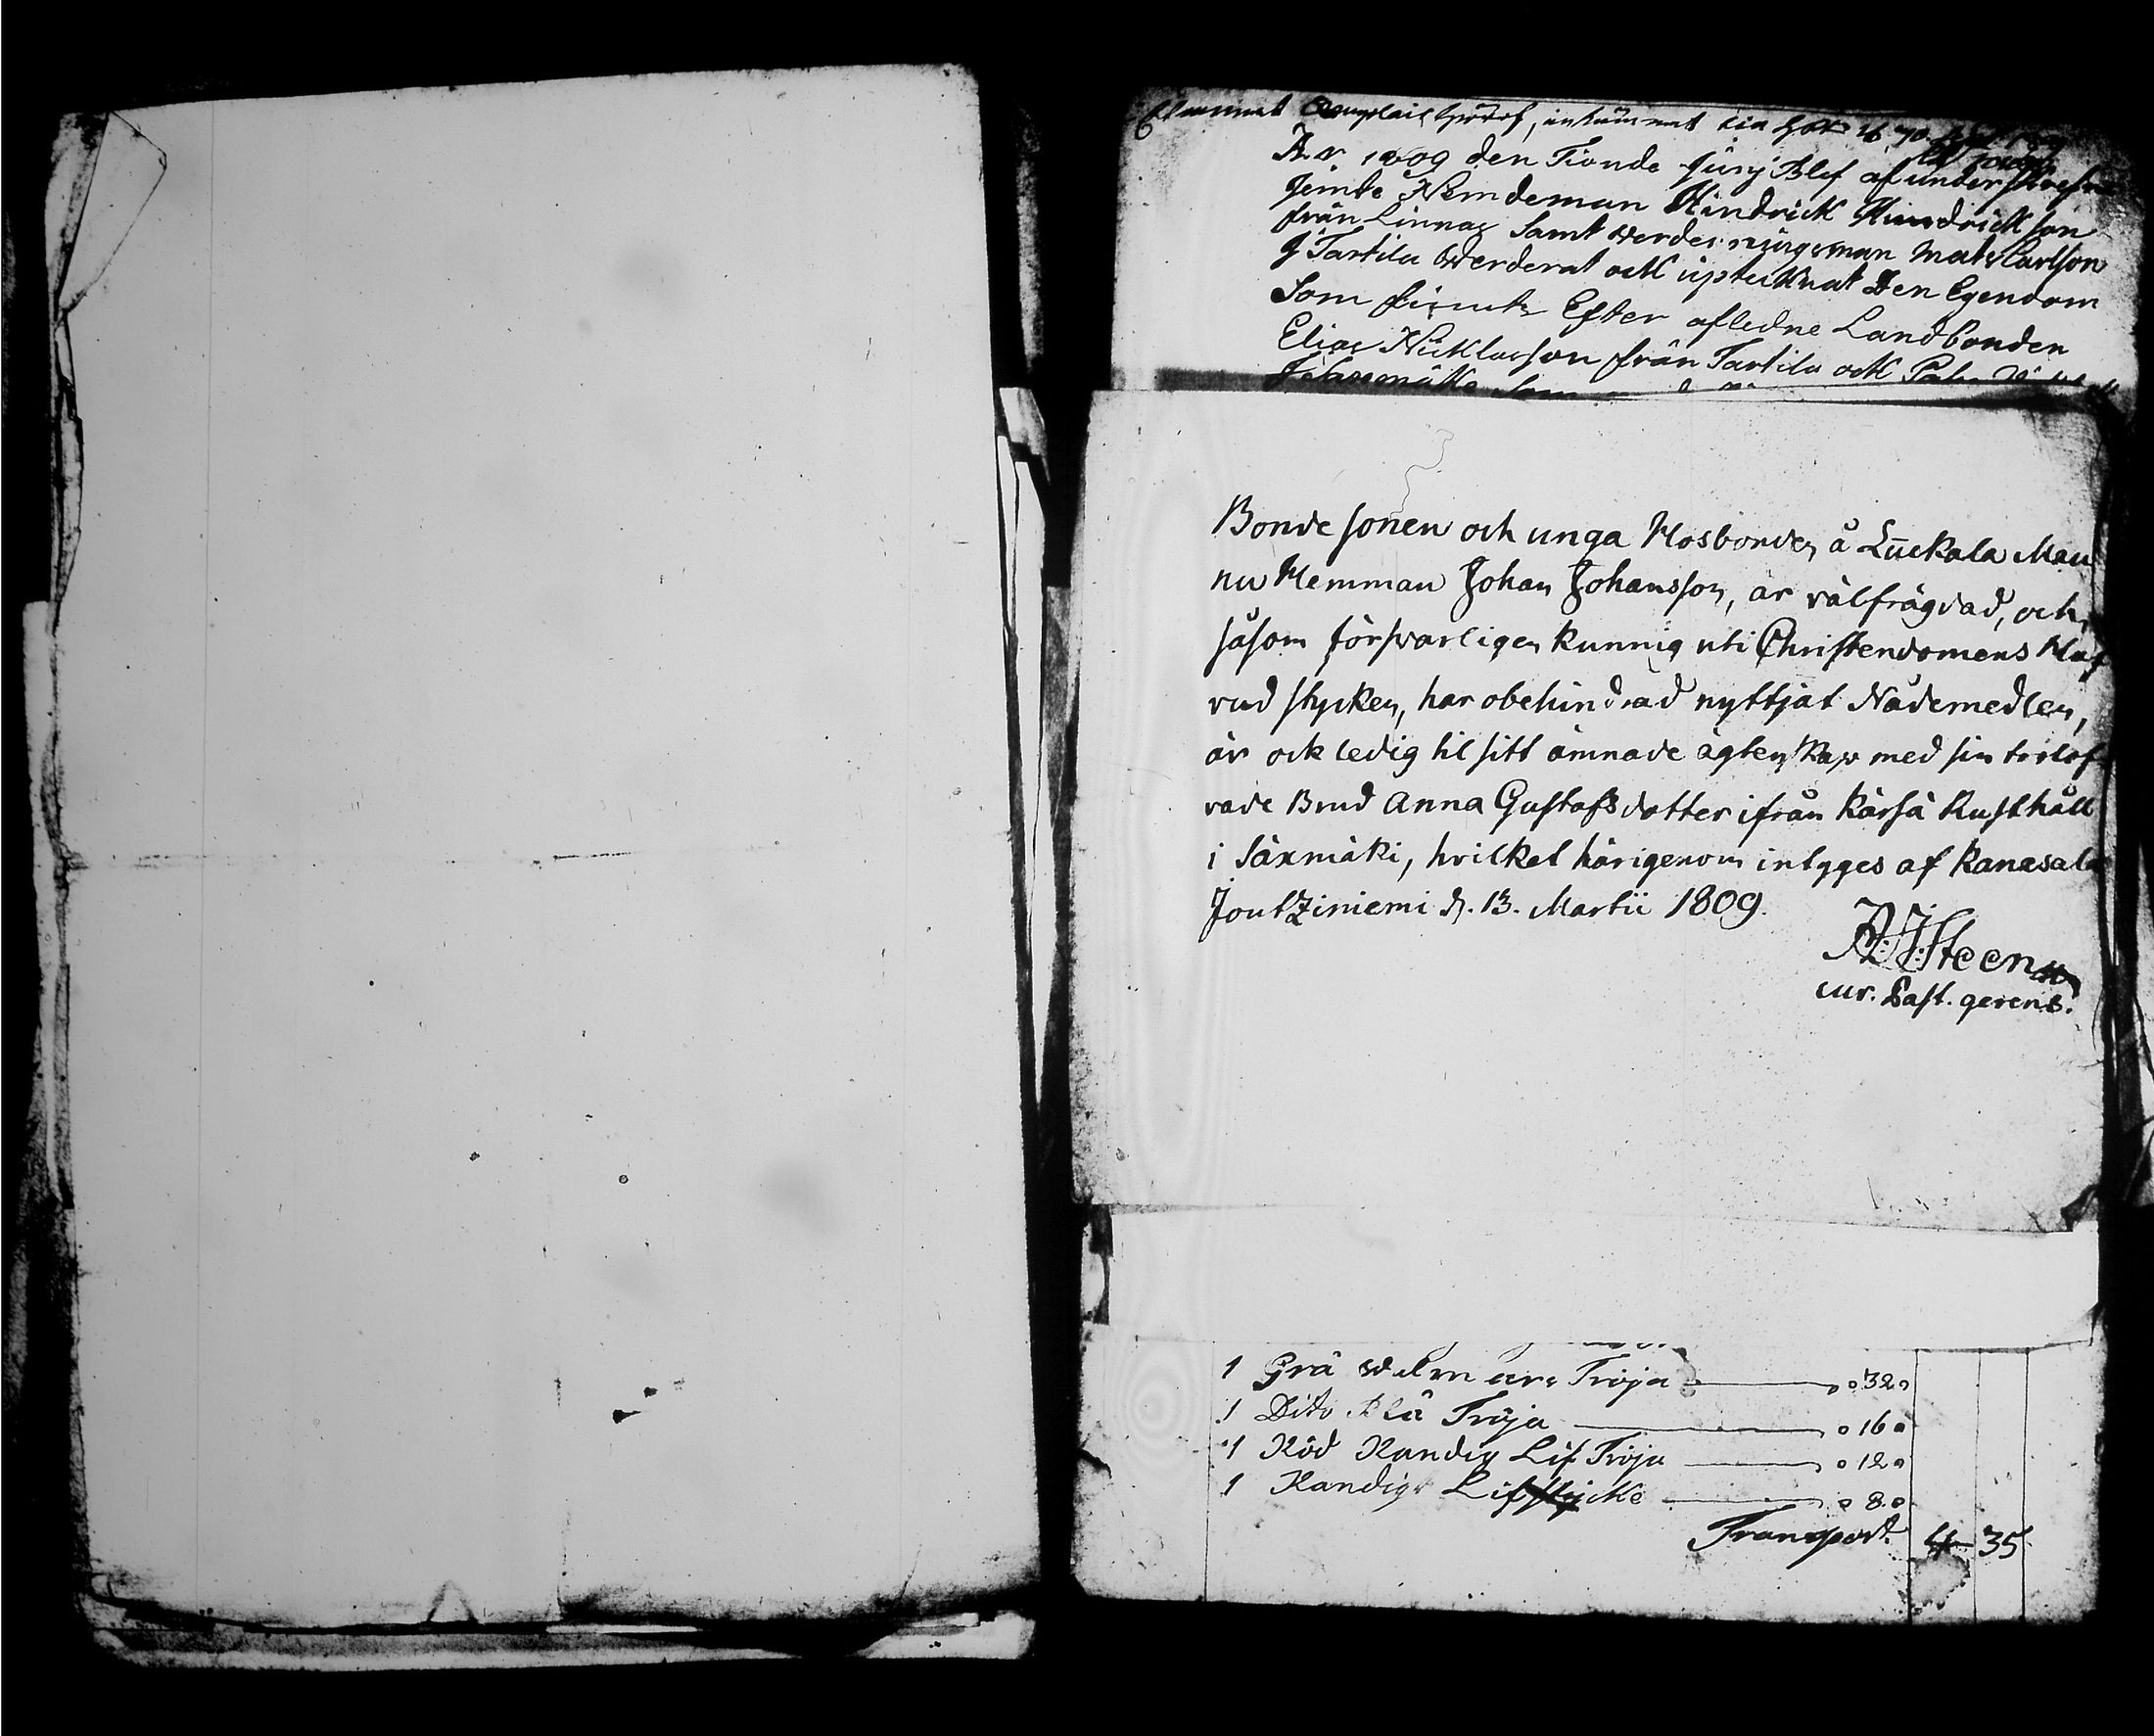 A:o 1809 den Tionde Junij Blef af underskrefne
Jemte Nemdeman Hindrick Hindrickson
från Linnas Samt Werderingsman Mats Carlson
J Tartila Werderat ock uptecknat Den Egendom
Som fints Efter afledne Landbonden
Elias Nicklasson från Tartila ock
Bonde sonen och unga Hosbonden å Luckala Mau
nu Hemman Johan Johansson, är välfrägdad, och,
såsom försvarligen kunnig uti Christendomens Huf
vud stycken, har obehindrad nyttjat Nådemedlen,
är ock ledig til sitt ämnade ägtenskap med sin trolof
vade Brud Anna Gustafsdotter ifrån Kärsä Rusthåll
i Säxmäki, hvilket härigenom intygges af Kanasala
Joutziniemi d. 13. Martii 1809.
A: J: Steen
cur. Past. gerens.
1 Grå Walmars Tröja 32
1 Dito Blå Tröja 16
1 Röd Randig Lif Tröja 12
1 Randig Lifstycke 8
Transport 4 35